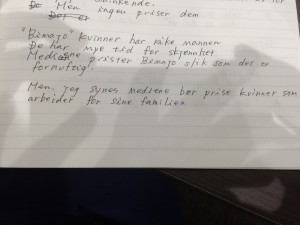 De Men ingen priser dem
"Bimajo" kvinner har rike mannen
De har mye tid for skjønnhet.
Mediene prister Bimajo slik som det er
fornuftig.
Men, jeg synes mediene bør prise kvinner som
arbeider for sine familien